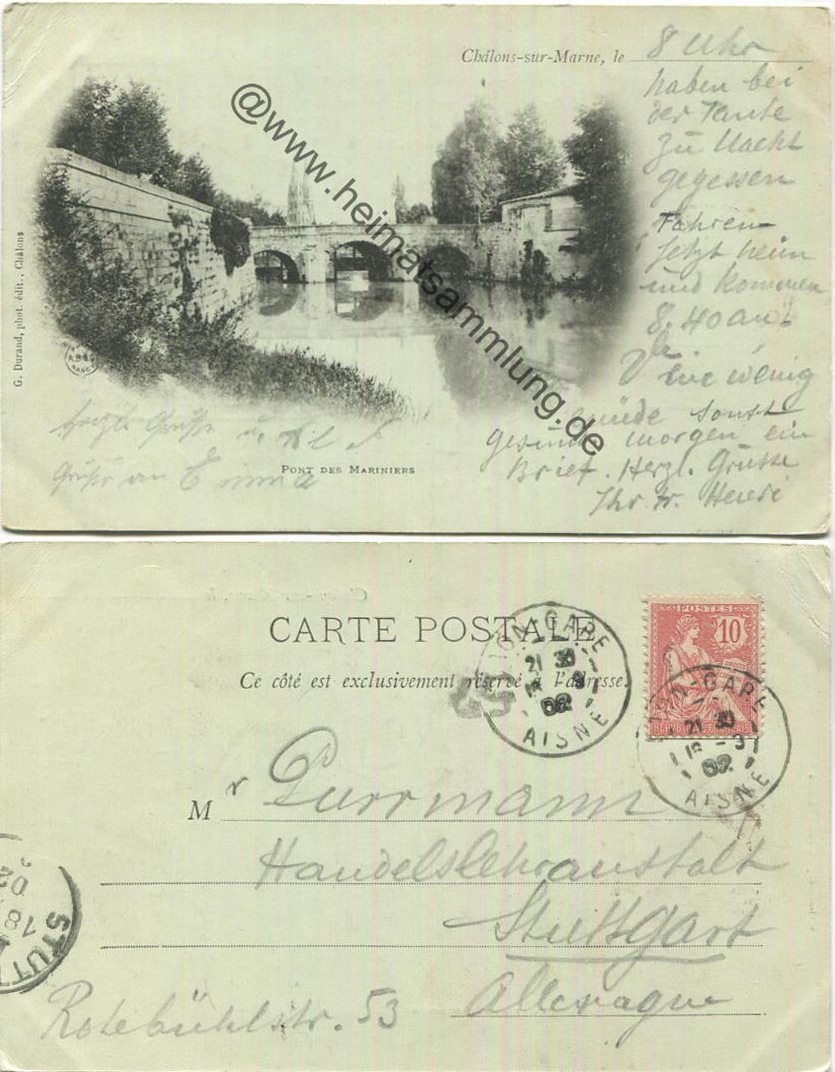 Châlons-sur-Marne, le 8 Uhr
haben bei
der Tante
zu Nacht
gegessen
Fahren
Jetzt heim
und kommen
8,40 an.
Eine wenig
müde sonst
gesund morgen ein
Brief. Herzl. Grüsse
Ihr Fr. Henri
Grüße an Emma
@www.heimatsammlung.de
G. Durand, phot. édit., Châlons
PONT DES MARINIERS
CARTE POSTALE
Ce côté est exclusivement réservé à l'adresse.
POSTES
10
GARE
21 30
02
AISNE
GARE
21 30
02
AISNE
Mr Purrmann
Handelslehranstalt
Stuttgart
Allemagne
Rotebühlstr. 53
STUT